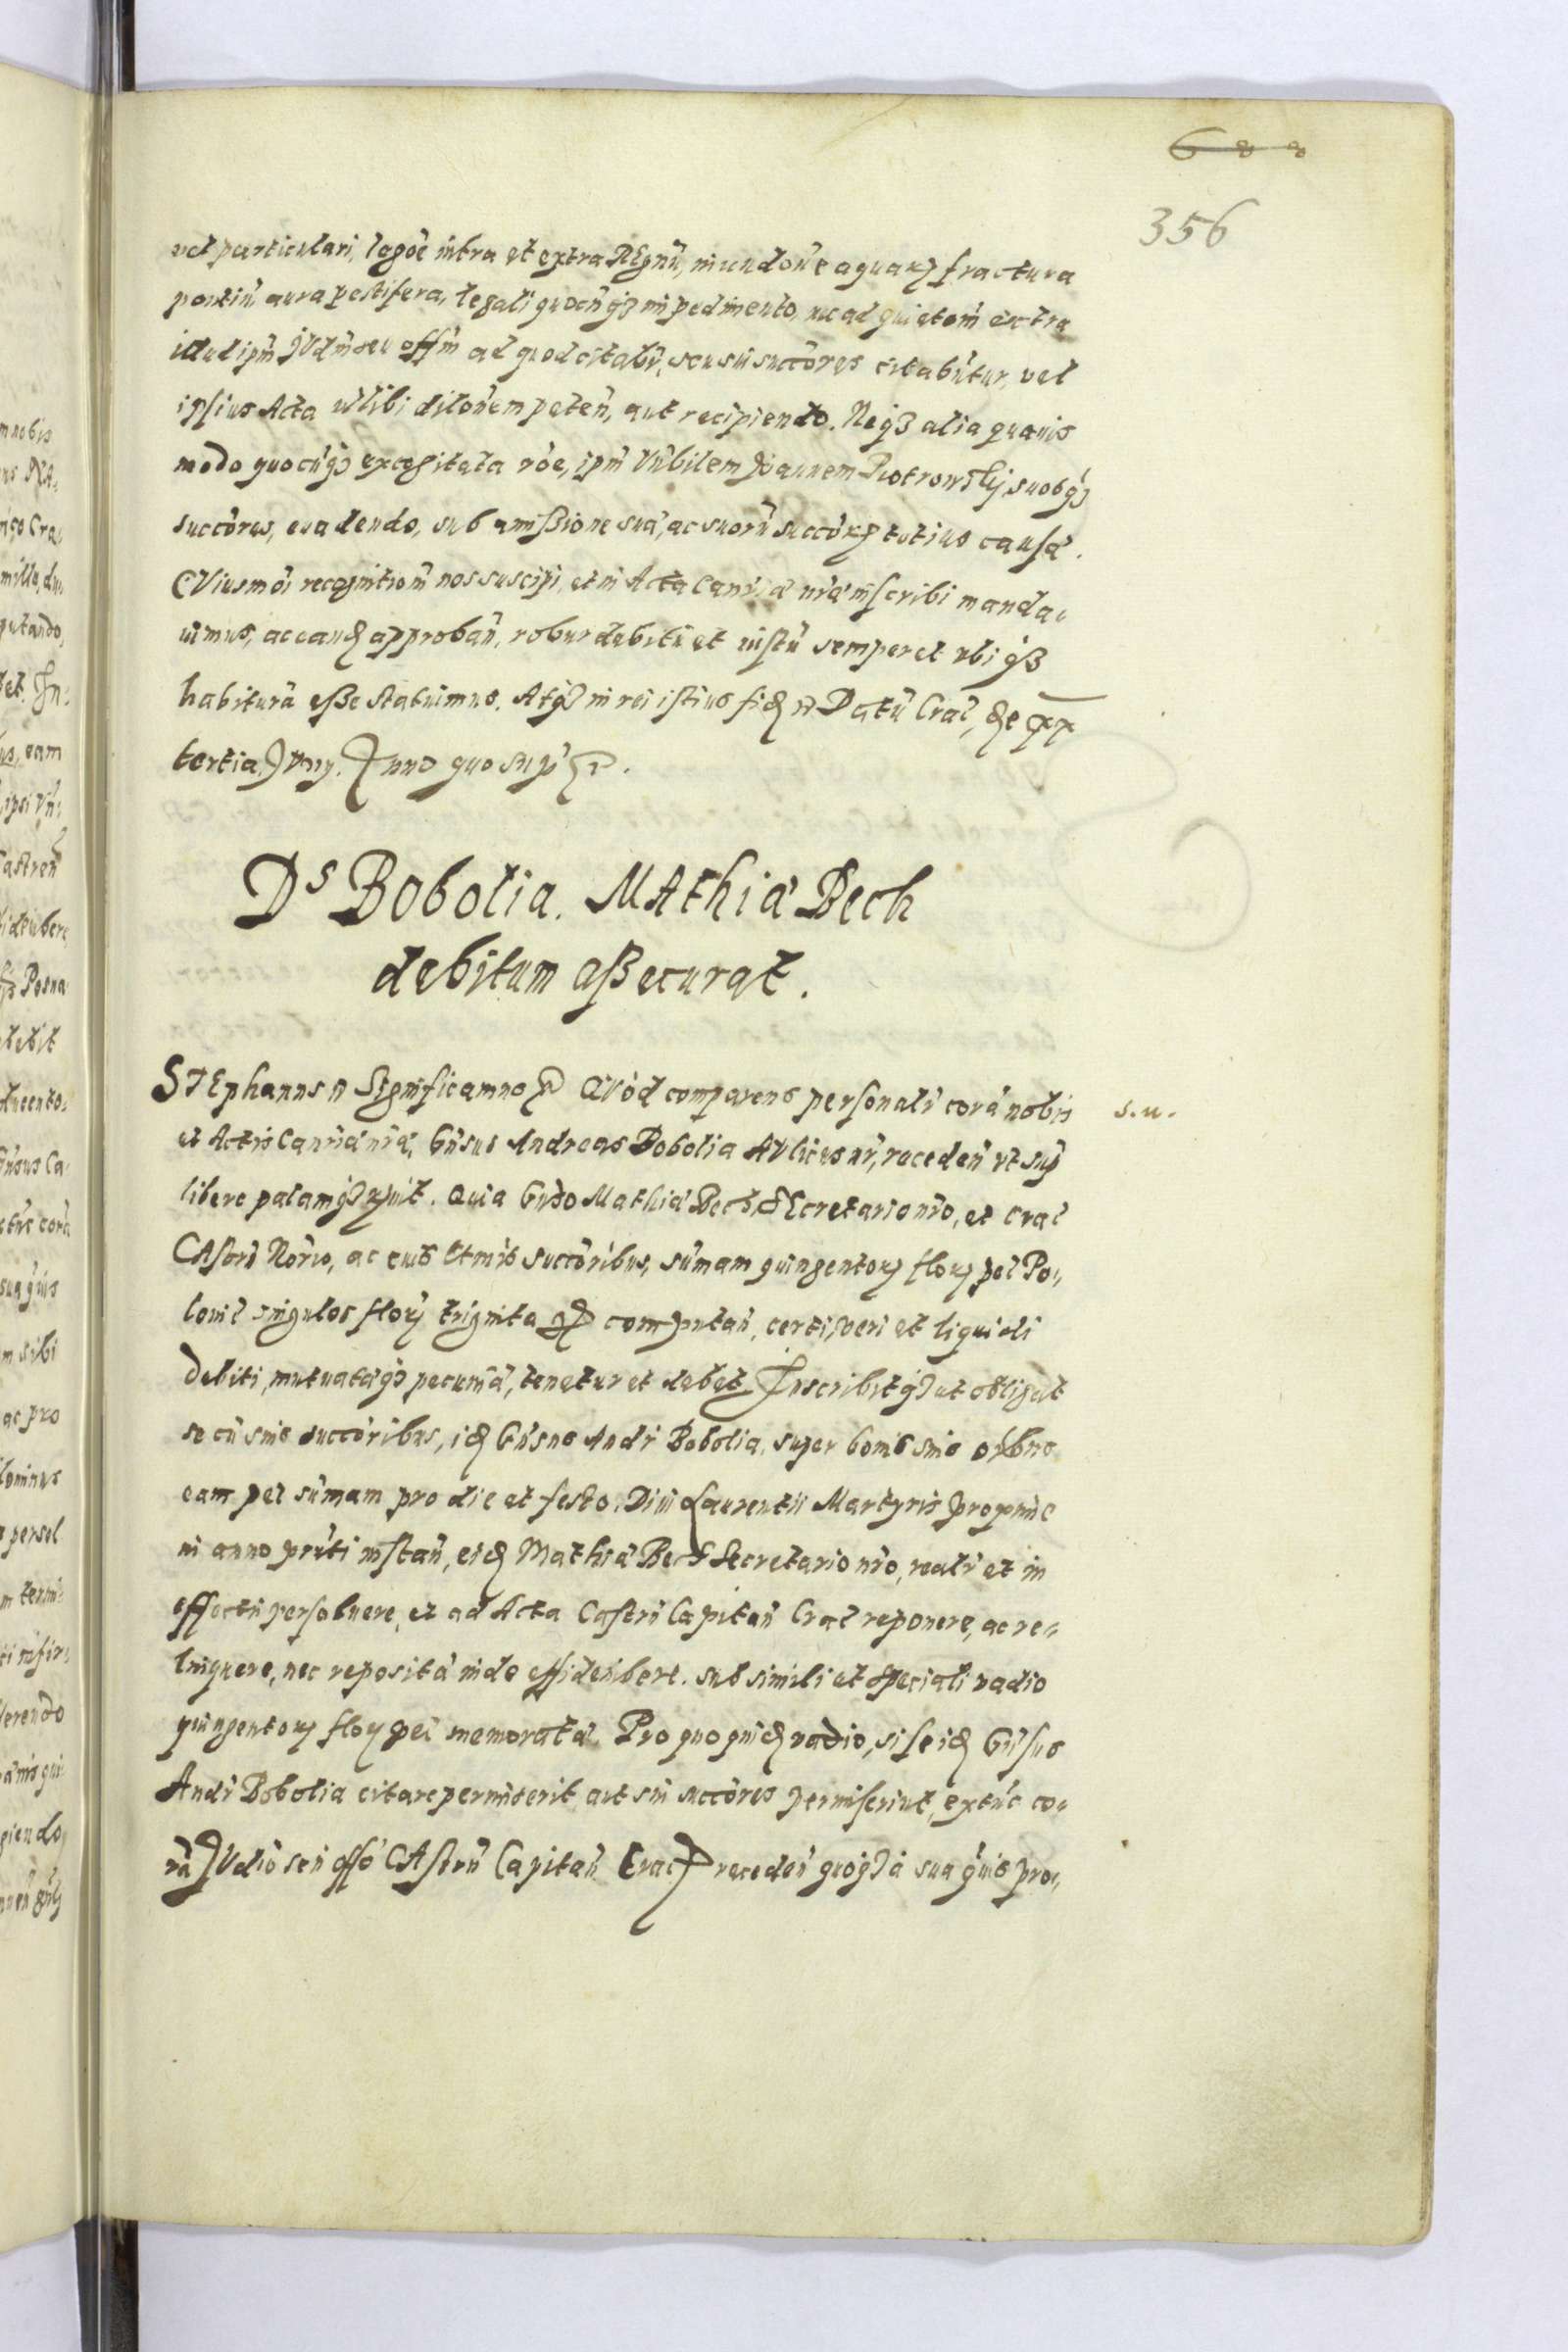 688
356
vel particulari, legõe intra et extra REgnũ, inundõne aquarꝫ fractura
pontiũ aura pestifera, legali quocũqꝫ impedimento, nec ad quietõm extra
illud ipm̃ JUdm̃ seu offm̃ ad quod citabr̃, seu sui succõres citabũtur, vel
ipsius Acta vĩ sibi dilon̄em peteñ, aut recipiendo. Neqꝫ alia quavis
modo quocũqꝫ excogitata rõe, ipm̃ Nobilem Joannem Piotrowskj suosqꝫ
succõres, evadendo, sub amißione sua, ac suorũ succõrꝫ totius causæ.
CViusmõi recognitionẽ nos suscipi, et in Acta Canriæ nrã inscribi manda„
uimus, ac eandꝫ approbañ, robur debitũ et iustũ semper et ubiqꝫ
habiturã eße statuimus. Atqꝫ in rei istius fidꝫ Datũ Crac, die xx
tertia Juny. Anno quo sup̃.
Ds BOBOlia. MAthiæ Bech
debitum aßecurat.
STEphanus Significamus QUòd comparens personalr̃ corã nobis s. u.
et Actis Canriæ nræ, Gñsus Andreas Bobolia AUlicus nr̃, recedeñ ut sup̃
libere palamqꝫ rpuit. Quia Gñso Mathiæ Bech, SEcretario nrõ, et Crac
CAstri Nõrio, ac eius ltmis succõribus, sũmam quingentorꝫ florꝫ pec Po„
lonic singulos florꝫ triginta computañ, certi, veri et liquidi
debiti, mutuatæqꝫ pecuniæ, tenetur et debet, Inscribitqꝫ et obligat
se cũ suis succõribus, idꝫ Gñsus Andr̃ Bobolia, super bonis suis oĩbus
eam pec sũmam pro die et festo Diui Laurentii Martyris proxime
in anno prñti instañ, eidꝫ Mathiæ Bech Secretario nrõ, realr̃ et in
effectu persoluere, et ad Acta Castri Capitañ Crac reponere, ac re„
linquere, nec repositã inde effidenbere. sub simili et speciali vadio
quingentorꝫ florꝫ pec memoratæ. Pro quo quidꝫ vadio, si se idꝫ Gñsus
Andr̃ Bobolia citare permiserit, aut sui succõres permiserint, extũc co„
rã JUdio seu offo CAstrñ Capitañ Crac recedeñ quoqꝫ à sua quis pro„